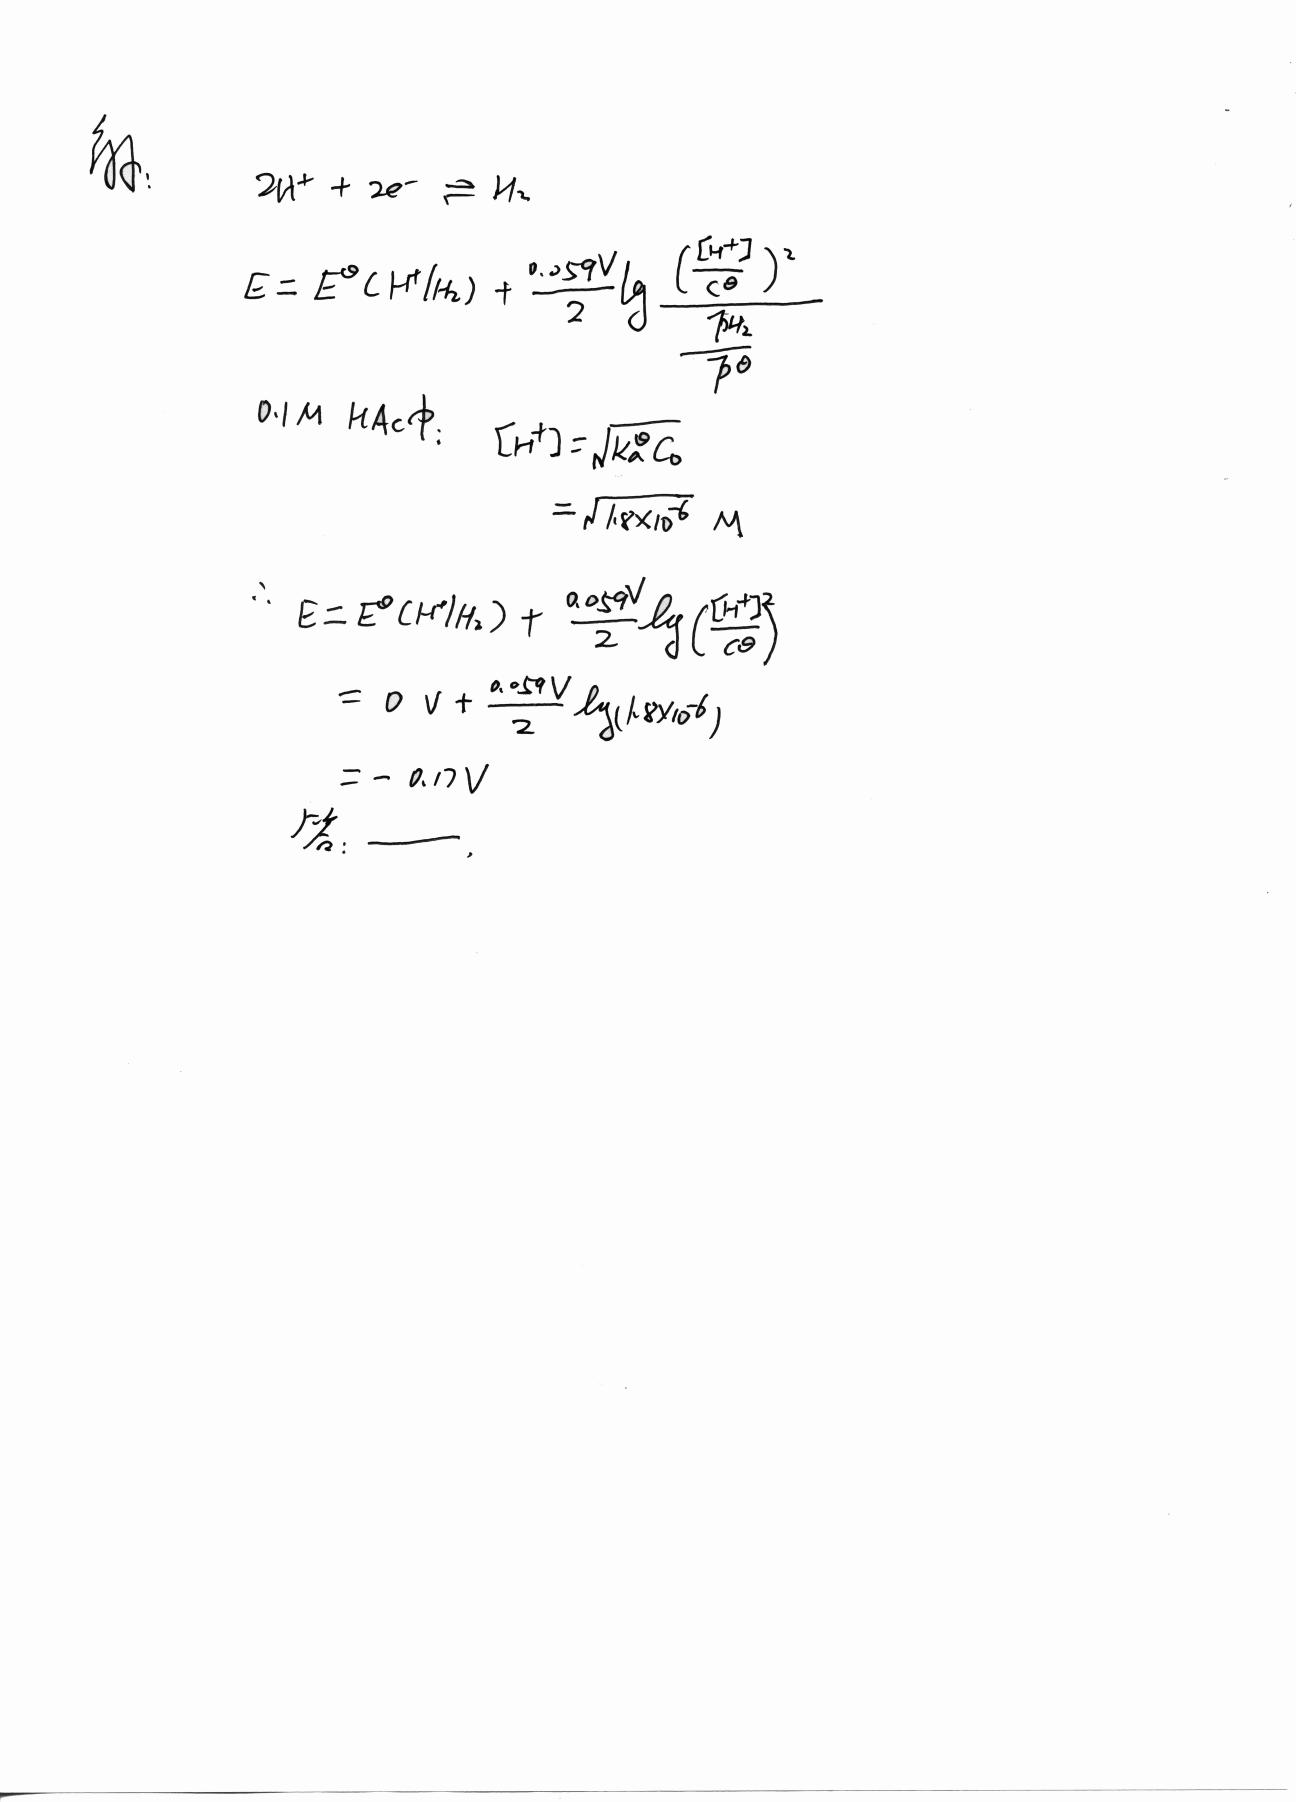 解:
2H⁺ + 2e⁻ ⇌ H₂
E = E^θ(H⁺/H₂) + 0.059V/2 lg ([H⁺]/c^θ)² / (pH₂/p^θ)
0.1M HAc中: [H⁺] = √(Ka^θ C₀)
= √(1.8×10⁻⁶) M
∴ E = E^θ(H⁺/H₂) + 0.059V/2 lg([H⁺]/c^θ)²
= 0 V + 0.059V/2 lg(1.8×10⁻⁶)
= - 0.17V
答: ——.